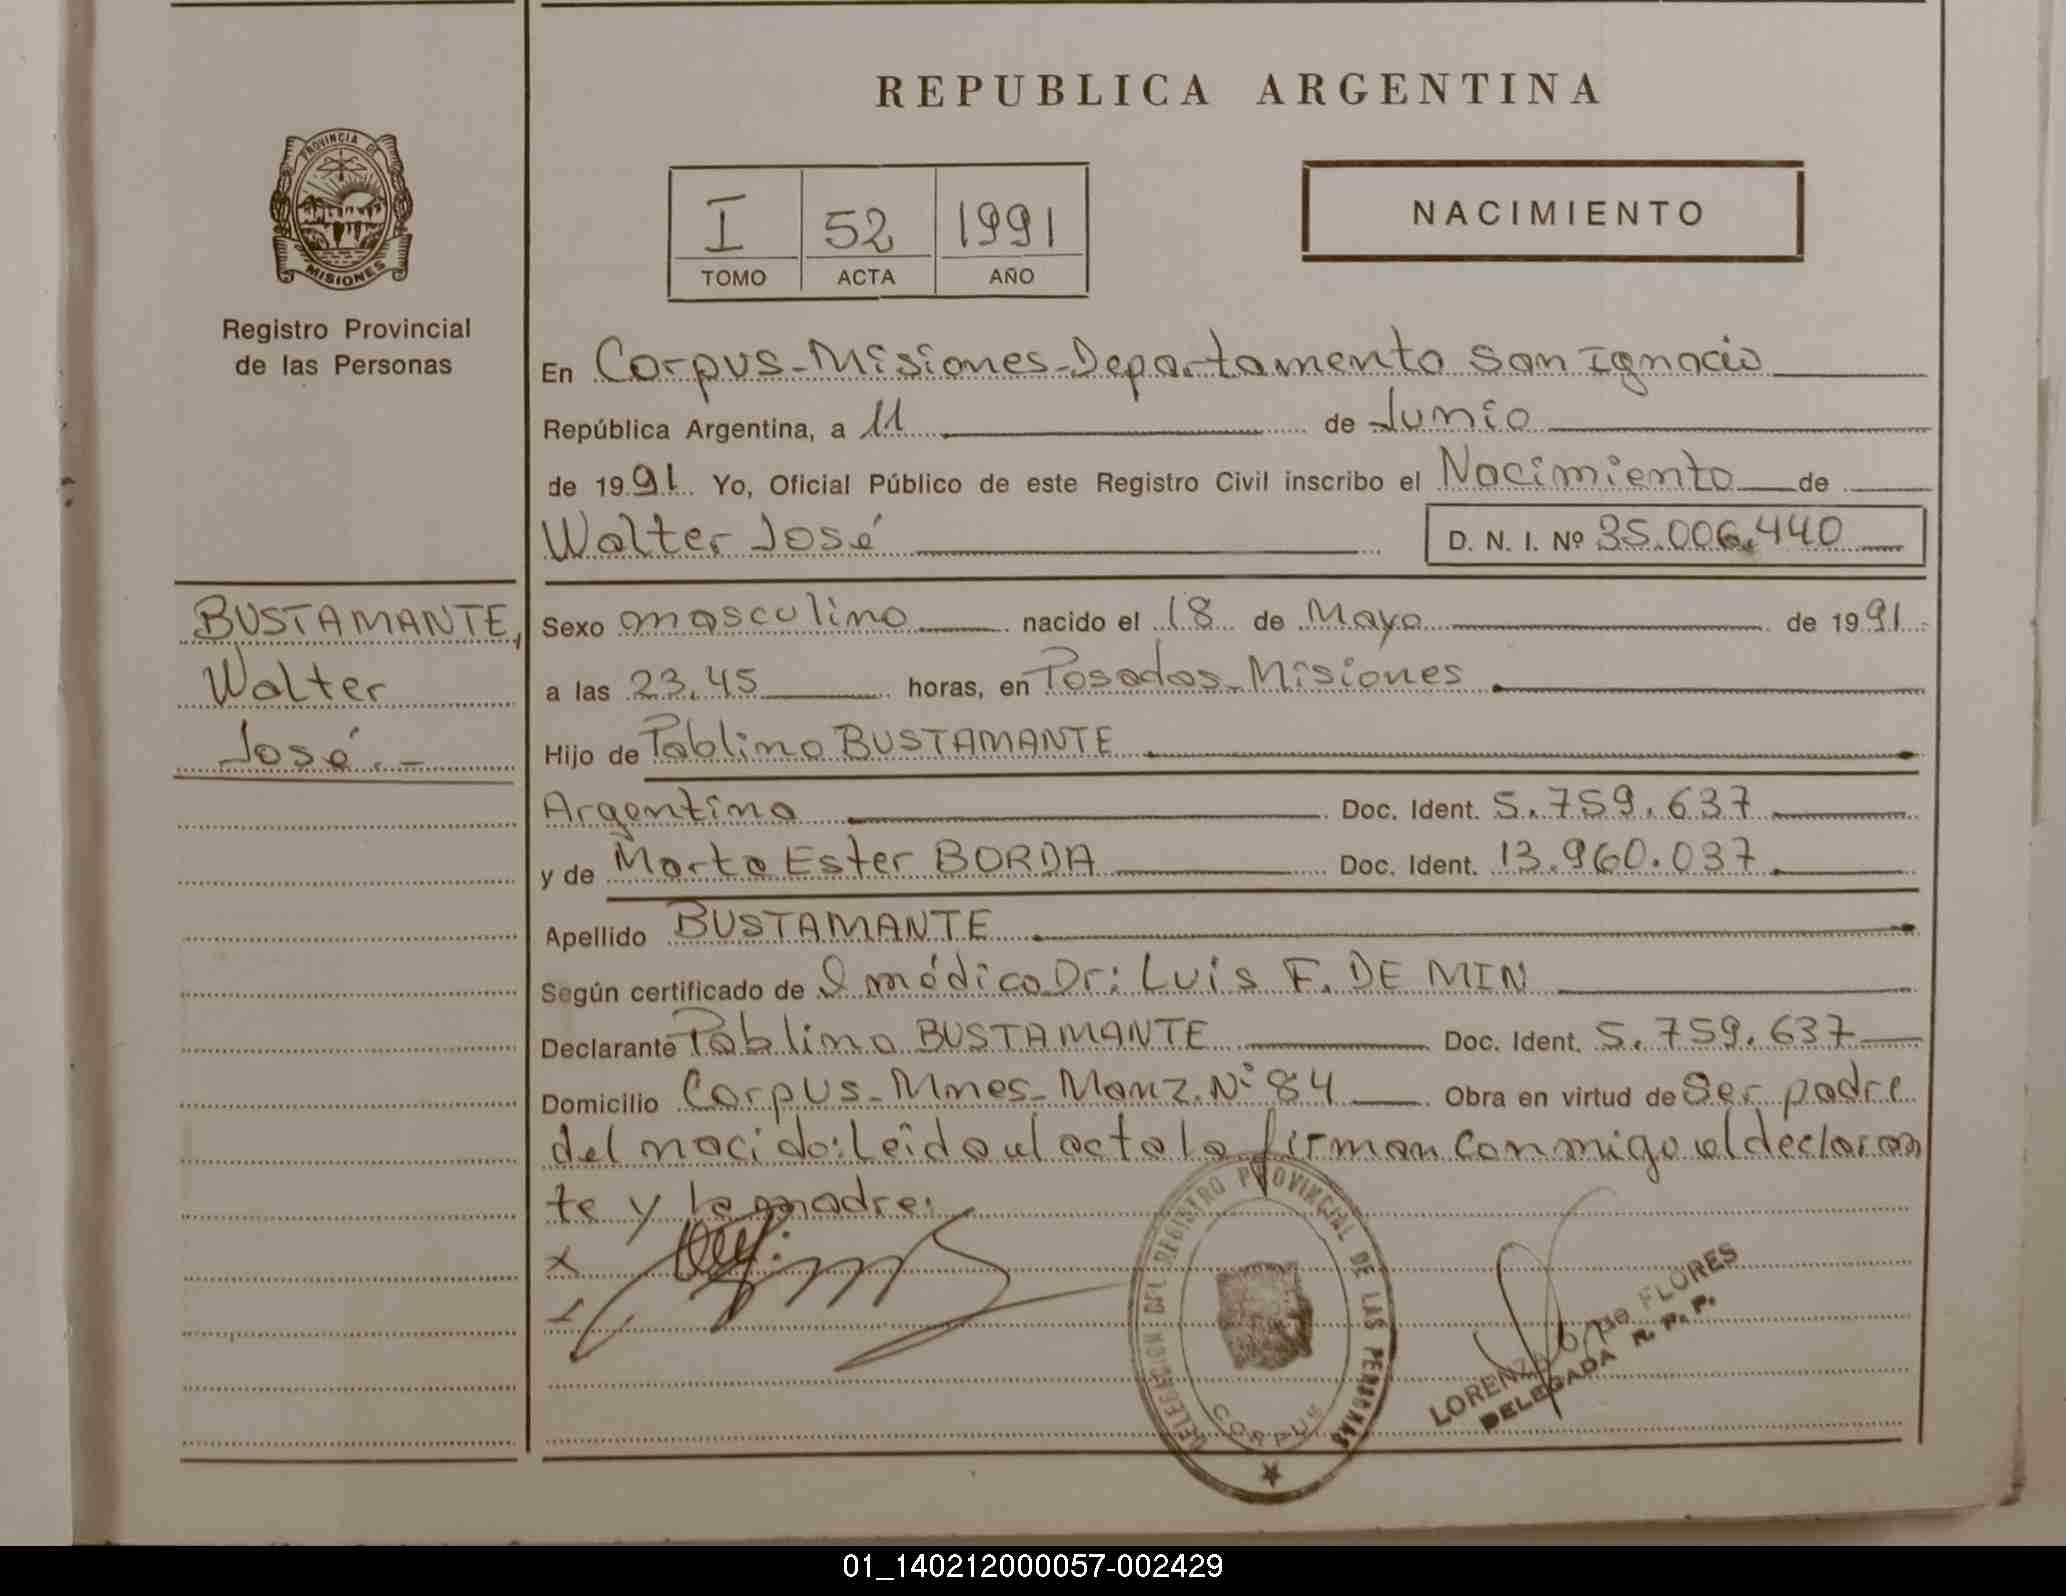 REPUBLICA ARGENTINA
PROVINCIA DE
MISIONES
Registro Provincial
de las Personas
I 52 1991
TOMO ACTA AÑO
NACIMIENTO
En Corpus-Misiones-Departamento San Ignacio
República Argentina, a 11 de Junio
de 1991. Yo, Oficial Público de este Registro Civil inscribo el Nacimiento de
Walter José
D. N. I. Nº 35.006.440
BUSTAMANTE,
Walter
José.-
Sexo masculino nacido el 18 de Mayo de 1991
a las 23.45 horas, en Posadas-Misiones
Hijo de Pablino BUSTAMANTE
Argentino Doc. Ident. 5.759.637
y de Marta Ester BORDA Doc. Ident. 13.960.037
Apellido BUSTAMANTE
Según certificado de l médico Dr: Luis F. DE MIN
Declarante Pablino BUSTAMANTE Doc. Ident. 5.759.637
Domicilio Corpus-Mnes-Manz. Nº 84 Obra en virtud de Ser padre
del nacido: Leído el acta la firman conmigo el declaran
te y la madre:
x
DELEGACION DEL REGISTRO PROVINCIAL DE LAS PERSONAS
CORPUS
LORENZA de FLORES
DELEGADA R. P. P.
01_140212000057-002429